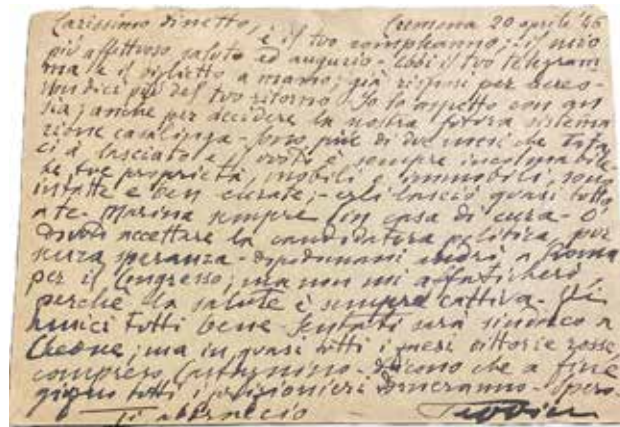 Carissimo Dinetto, Cremona 20 aprile 46
è il tuo compleanno; il mio
più affettuoso saluto ed augurio - Ebbi il tuo telegram
ma e il biglietto a mano; già risposi per aereo-
non dici più del tuo ritorno. Io lo aspetto con an
sia; anche per decidere la nostra futura sistema
zione casalinga - Sono più di due mesi che
ci à lasciato e il vuoto è sempre incolmabile
Le tue proprietà, mobili e immobili, sono
intatte e ben curate; - egli lasciò quasi tutto
a te - Marina sempre in casa di cura - O
dovuto accettare la candidatura politica, pur
senza speranza - dopodomani andrò a Roma
per il Congresso; ma non mi affaticherò,
perchè la salute è sempre cattiva - Gli
amici tutti bene - sarà sindaco a
; ma in quasi tutti i paesi vittorie rosse,
compreso - dicono che a fine
giugno tutti i prigionieri torneranno - Spero -
Ti abbraccio